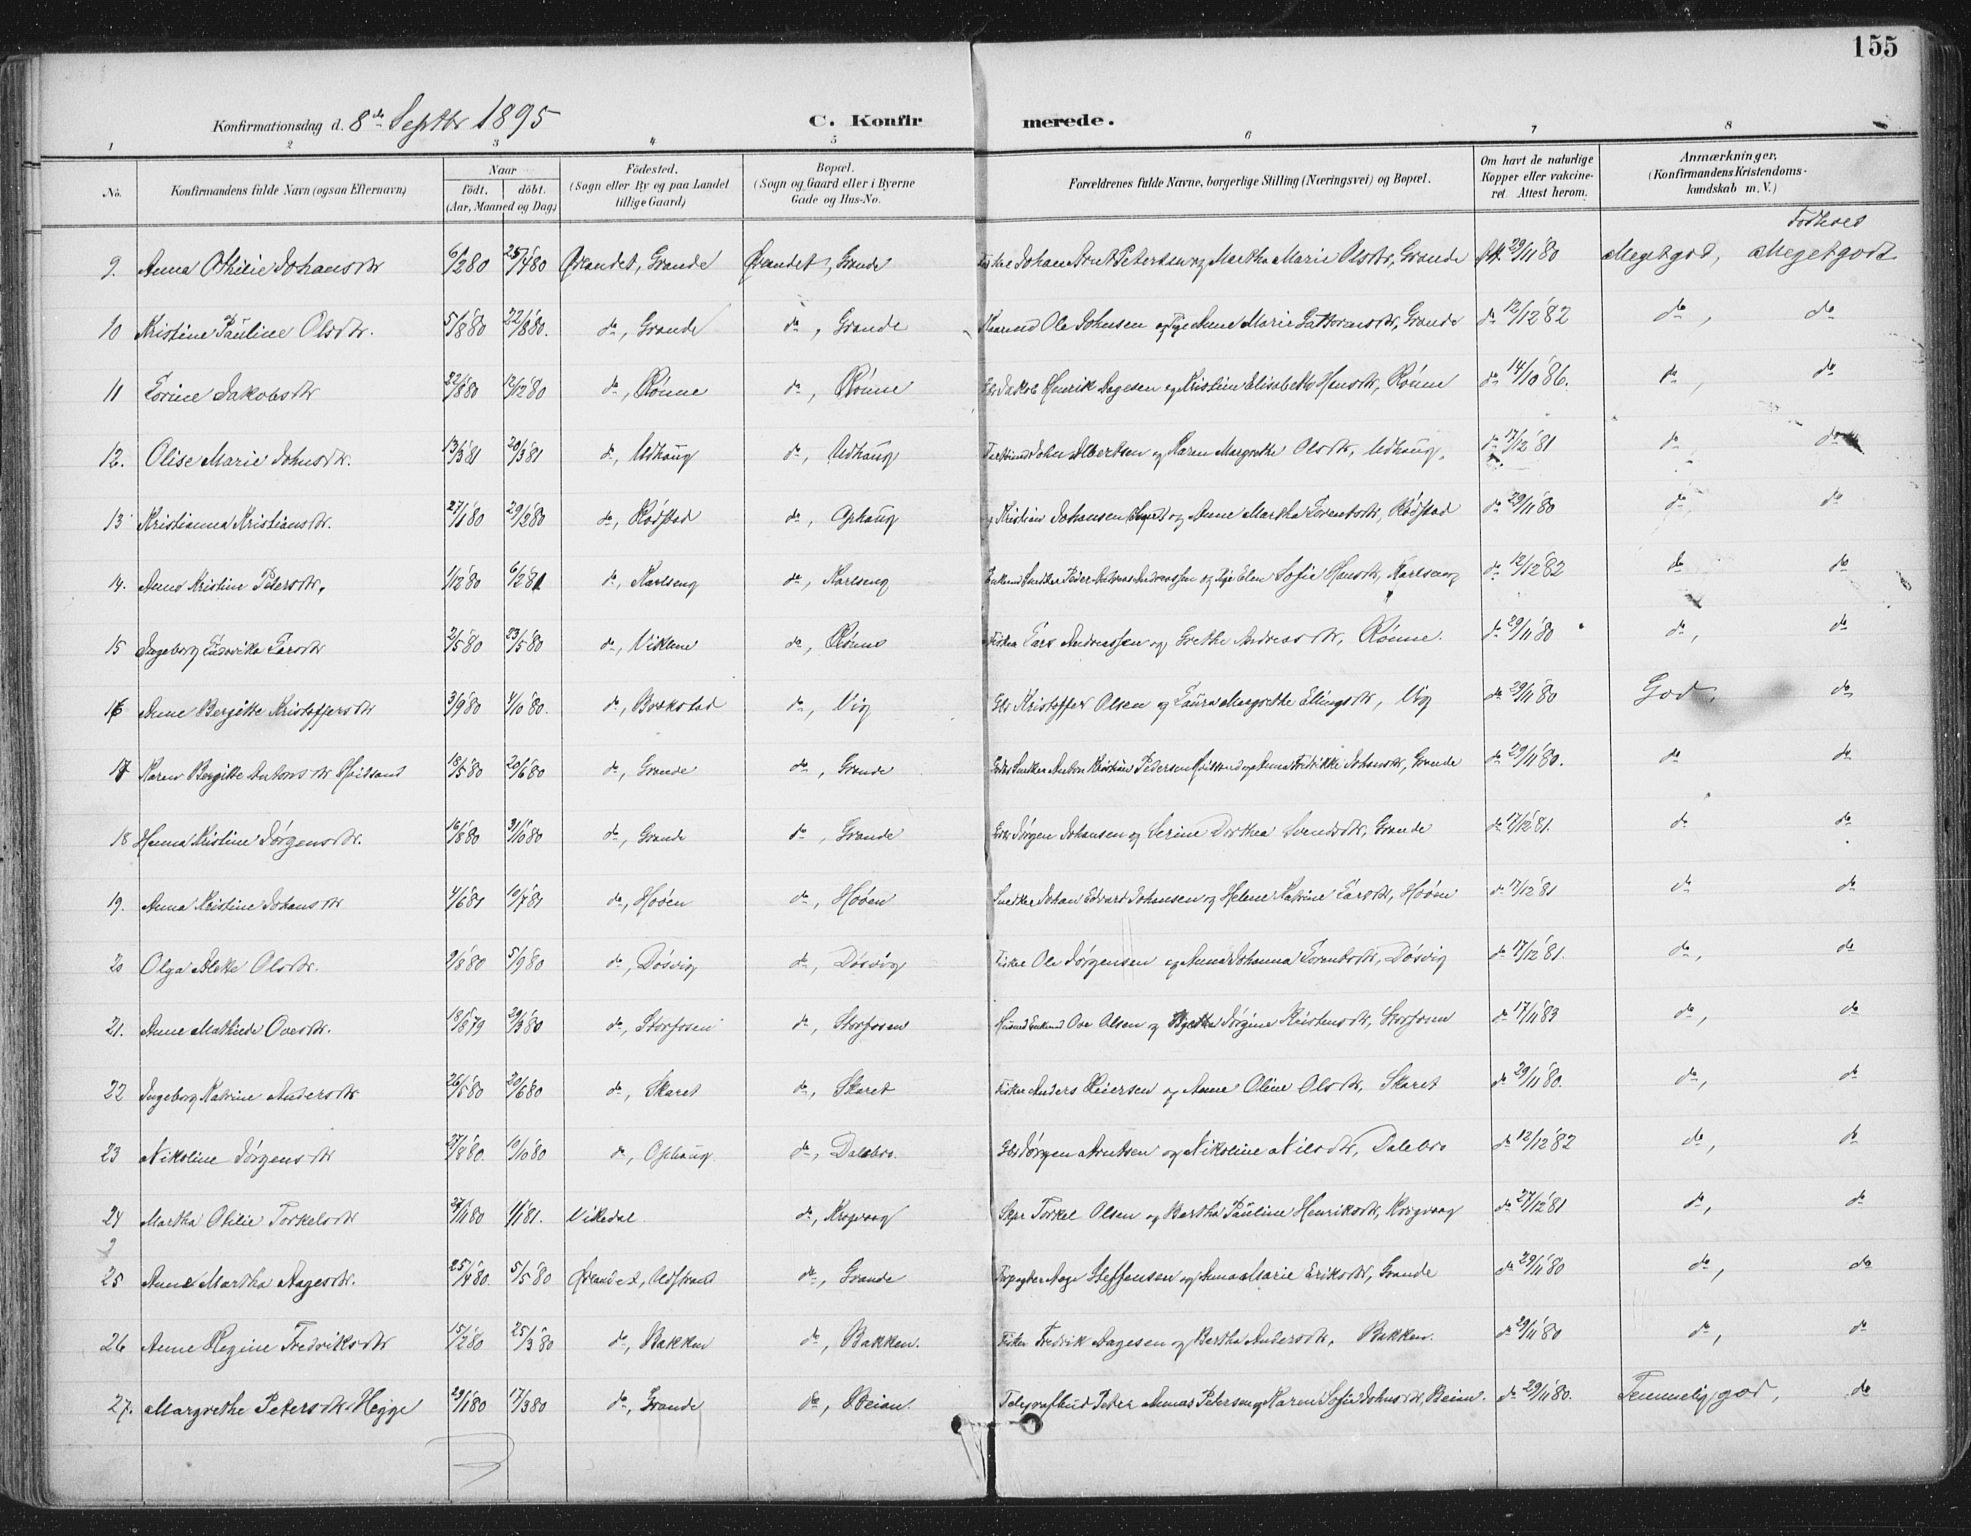 155
Konfirmationsdag d. 8de Septbr 1895 C. Konfirmerede.
1 2 3 4 5 6 7 8
No. Konfirmandens fulde Navn (ogsaa Efternavn) Naar födt. döbt. (Aar, Maaned og Dag) Födested. (Sogn eller By og paa Landet tillige Gaard) Bopæl. (Sogn og Gaard eller i Byerne Gade og Hus-No. Forældrenes fulde Navne, borgerlige Stilling (Næringsvei) og Bopæl. Om havt de naturlige Kopper eller vakcineret. Attest herom. Anmærkninger, (Konfirmandens Kristendomskundskab m. V.)
Forhold
9. Anna Othilie Johansdtr 6/2 80 25/4 80 Ørlandet, Grande Ørlandet, Grande Fisker Johan Arnt Petersen og Martha Marie Olsdtr, Grande 29/11 80 Meget god, Meget godt
10 Kristine Pauline Olsdtr. 5/8 80 22/8 80. do, Grande do, Grande Ole Johnsen og Anne Marie Guttormsdtr, Grande do 12/12 82 do, do
11 Lorine Jakobsdtr 22/8 80 12/12 80 do, Rönne do, Rönne Jakob Henrik Aagesen og Kristine Elisabeth Hansdtr, Rönne do 14/10 86. do, do
12. Olise Marie Johnsdtr. 13/3 81 20/3 81 do, Udhaug do, Udhaug John Albertsen og Karen Margrethe Olsdtr, Udhaug. do 17/12 81 do do
13 Kristianna Kristiansdtr. 27/1 80 29/2 80 do, Rödstad do, Ophaug Kristian Johansen og Anne Martha Lorentsdtr, Rödstad do 29/11 80 do do
14. Anna Kristine Petersdtr. 1/12 80 6/2 81 do, Karlseng do, Karlseng Snedker Peder Andreas Andreassen og Elen Sofie Hansdtr, Karlseng do 12/12 82 do do
15 Ingeborg Ludovika Larsdtr 2/5 80 23/5 80 do, Viklem do, Rönne Fisker Lars Andreassen og Grethe Andreasdtr, Rönne. do 29/11 80 do, do
16 Anne Bergitte Kristoffersdtr 3/9 80 4/10 80. do, Borkstad do, Vig Kristoffer Olsen og Laura Margrethe Ellingsdtr, Vig do 29/11 80 God, do
17 Karen Bergitte Antonsdtr Hvidsand 18/5 80 20/6 80 do, Grande do, Grande Snedker Anton Kristian Pedersen Hvidsand og Anna Fredrikke Johansdtr, Grande do 29/11 80. do do
18 Hanna Kristine Jörgensdtr. 16/8 80 31/10 80 do, Grande do, Grande Jörgen Johansen og Serine Dorthea Svendsdtr, Grande do 17/12 81. do do
19. Anna Kristine Johansdtr 4/6 81 10/7 81 do, Hoöen do, Hoöen Snedker Johan Edvard Johansen og Helene Katrine Larsdtr, Hoöen do 17/12 81 do do
20 Olga Alette Olsdtr. 9/8 80 5/9 80 do, Dösvig do, Dösvig Fisker Ole Jörgensen og Anna Johanna Lorentsdtr, Dösvig do 17/12 81. do, do
21. Anne Mathilde Ovesdtr. 18/8 79 29/3 80 do, Storfosen do, Storfosen Ove Olsen og Jörgine Kristensdtr, Storfosen do 17/11 83 do, do
22 Ingeborg Katrine Andersdtr 26/5 80 20/6 80 do, Skaret do, Skaret Fisker Anders Reiersen og Anne Oline Olsdtr, Skaret do 29/11 80. do, do
23 Nikoline Jörgensdtr 27/8 80. 10/10 80 do, Ophaug. do, Dalebro. Jörgen Arntsen og Nikoline Nilsdtr, Dalebro do 12/12 82 do, do
24 Martha Otilie Torkelsdtr 27/11 80 1/1 81. Vikedal. do, Krogvaag Torkel Olsen og Bertha Pauline Henriksdtr, Krogvaag do 27/12 81 do, do
25 Anne Martha Aagesdtr. 25/4 80. 5/5 80 Ørlandet, Udstrand do, Grande Aage Steffensen og Anna Marie Eriksdtr, Grande do 29/11 80 do, do
26 Anne Regine Fredriksdtr 15/2 80 25/3 80 do, Bakken do, Bakken. Fisker Fredrik Aagesen og Bertha Andersdtr, Bakken. do 29/11 80 do, do
27. Margrethe Petersdtr Hegge 29/1 80 17/3 80 do, Grande do, Beian. Telegrafbud Peder Petersen og Karen Sofie Johnsdtr, Beian. do 29/11 80. Temmelig god, do